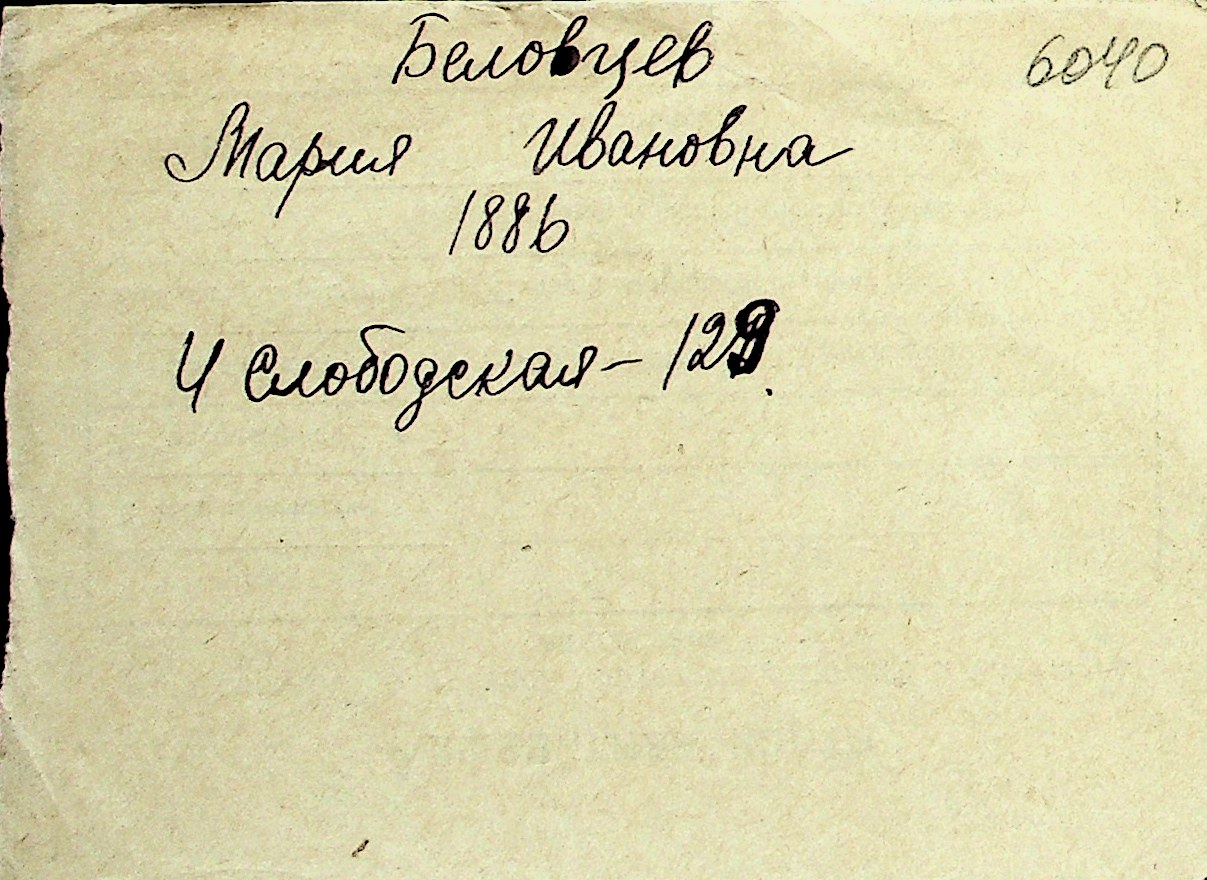 Беловцев
6040
Мария Ивановна
1886
4 Слободская - 129.